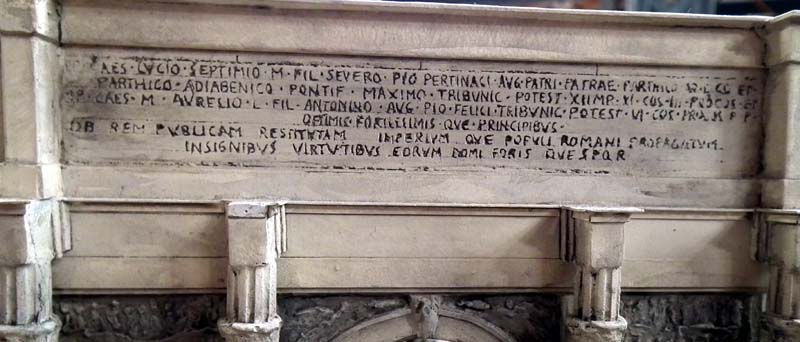 CAES · LVCIO · SEPTIMIO · M · FIL · SEVERO · PIO PERTINACI · AVG · PATRI · PATRAE · PARTHICO
PARTHICO · ADIABENICO · PONTIF · MAXIMO · TRIBVNIC · POTEST · XI IMP · XI · COS · III ·
CAES · M · AVRELIO · L · FIL · ANTONINO · AVG · PIO · FELICI · TRIBVNIC · POTEST · VI · COS · P P
QVE · PRINCIPIBVS ·
OB REM PVBLICAM RESTITVTAM IMPERIVM QVE POPVLI ROMANI PROPAGATVM
INSIGNIBVS VIRTVTIBVS EORVM DOMI FORIS QVE SPQR